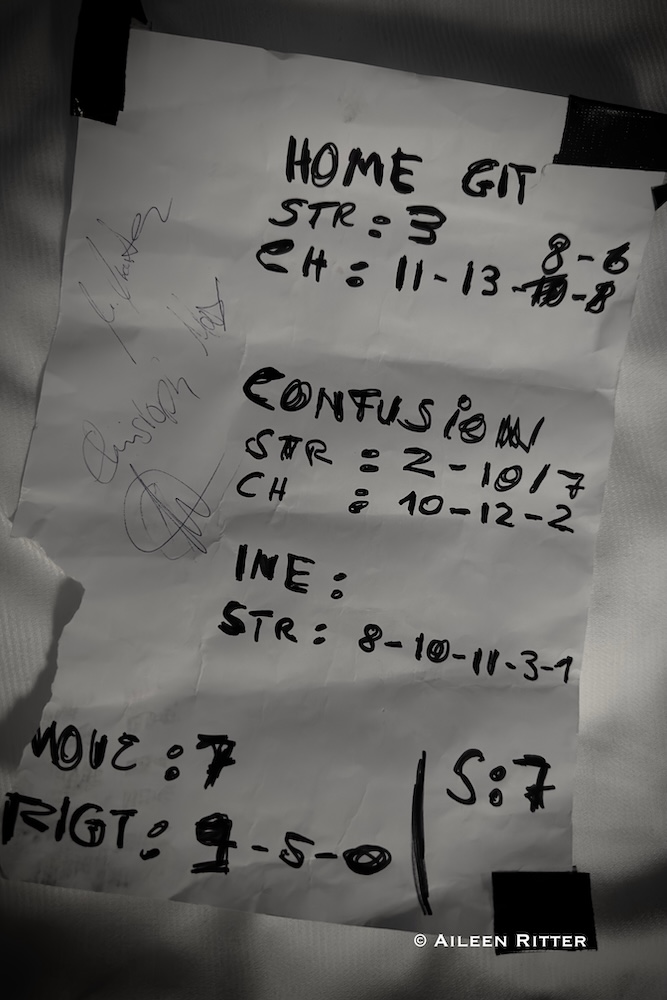 HOME GIT
STR : 3
8-6
CH : 11-13-10-8
CONFUSION
STR : 2-10/7
CH : 10-12-2
INE :
STR : 8-10-11-3-1
MOVE : 7
S:7
RIGT : 9-5-0
Christoph
© AILEEN RITTER